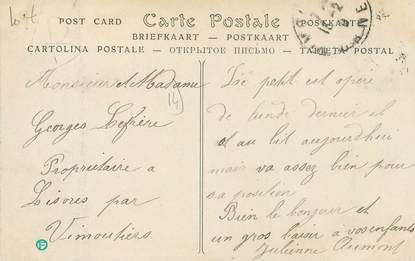 lot
POST CARD Carte Postale POSTCARD
BRIEFKAART — POSTKAART
CARTOLINA POSTALE — ОТКРЫТОЕ ПИСЬМО — TARJETA POSTAL
Monsieur et Madame
14
Georges Lefrère
Propriétaire a
Lisores par
Vimoutiers
Le petit est opéré
de lundi dernier il
est au lit aujourd'hui
mais va assez bien pour
sa position
Bien le bonjour et
un gros baiser a vos enfants
Julienne Aumont